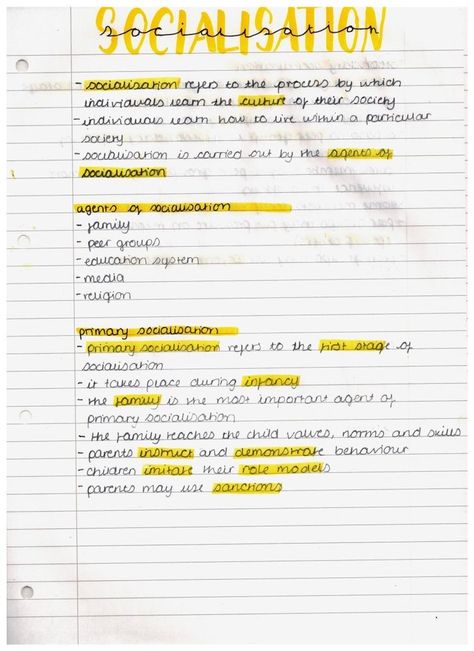 SOCIALISATION
socialisation
- socialisation refers to the process by which
individuals learn the culture of their society
- individuals learn how to live within a particular
society
- socialisation is carried out by the agents of
socialisation
agents of socialisation
- family
- peer groups
- education system
- media
- religion
primary socialisation
- primary socialisation refers to the first stage of
socialisation
- it takes place during infancy
- the family is the most important agent of
primary socialisation
- the family teaches the child values, norms and skills
- parents instruct and demonstrate behaviour
- children imitate their role models
- parents may use sanctions